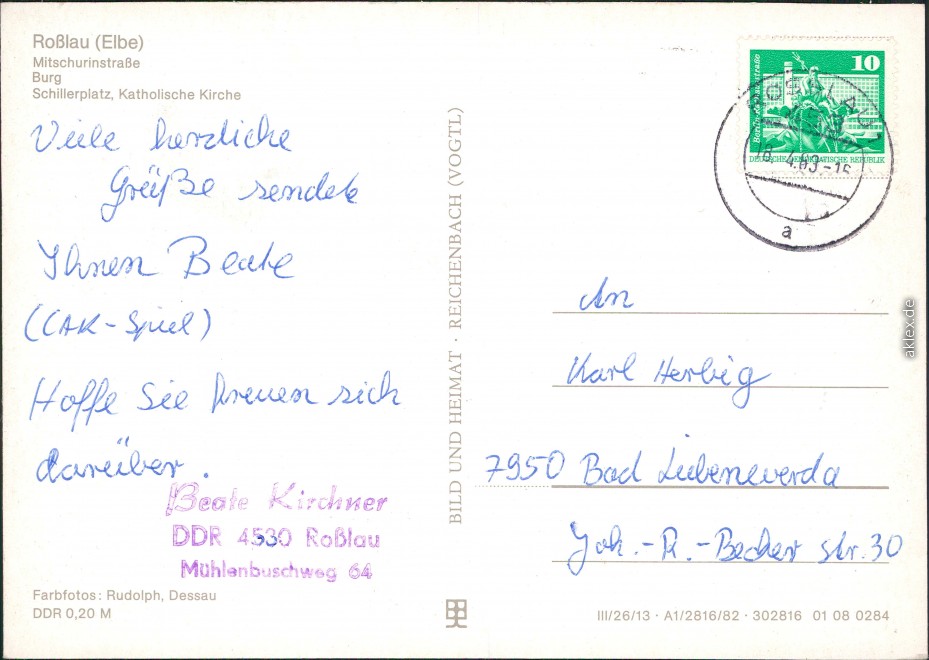 Roßlau (Elbe)
Mitschurinstraße
Burg
Schillerplatz, Katholische Kirche
Viele herzliche
Grüße sendet
Ihnen Beate
(CAK-Spiel)
Hoffe Sie freuen sich
darüber.
Beate Kirchner
DDR 4530 Roßlau
Mühlenbuschweg 64
Farbfotos: Rudolph, Dessau
DDR 0,20 M
BILD UND HEIMAT · REICHENBACH (VOGTL)
10
DEUTSCHE DEMOKRATISCHE REPUBLIK
ROSSLAU 1
4.83.-16
a
An
Karl Herbig
7950 Bad Liebenwerda
Joh.-R.-Becher str. 30
III/26/13 · A1/2816/82 · 302816 01 08 0284
aklex.de